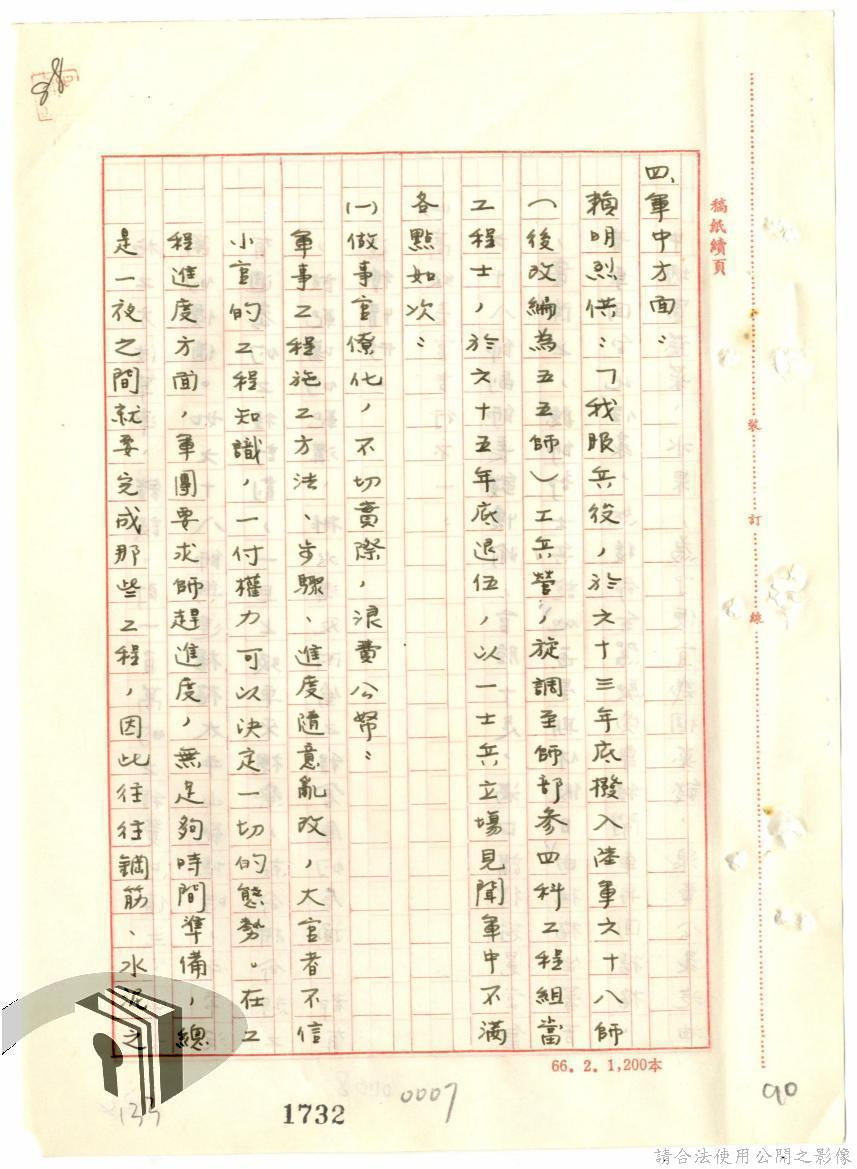 稿紙續頁
四、軍中方面：
賴明烈供：「我服兵役，於六十三年底撥入陸軍六十八師
（後改編為五五師）工兵營，旋調至師部參四科工程組當
工程士，於六十五年底退伍，以一士兵立場見聞軍中不滿
各點如次：
(一)做事官僚化，不切實際，浪費公帑：
軍事工程施工方法、步驟、進度隨意亂改，大官者不信
小官的工程知識，一付權力可以決定一切的態勢。在工
程進度方面，軍團要求師趕進度，無足夠時間準備，總
是一夜之間就要完成那些工程，因此往往鋼筋、水泥之
裝訂線
66. 2. 1,200本
88
90
133
1732
0007
請合法使用公開之影像